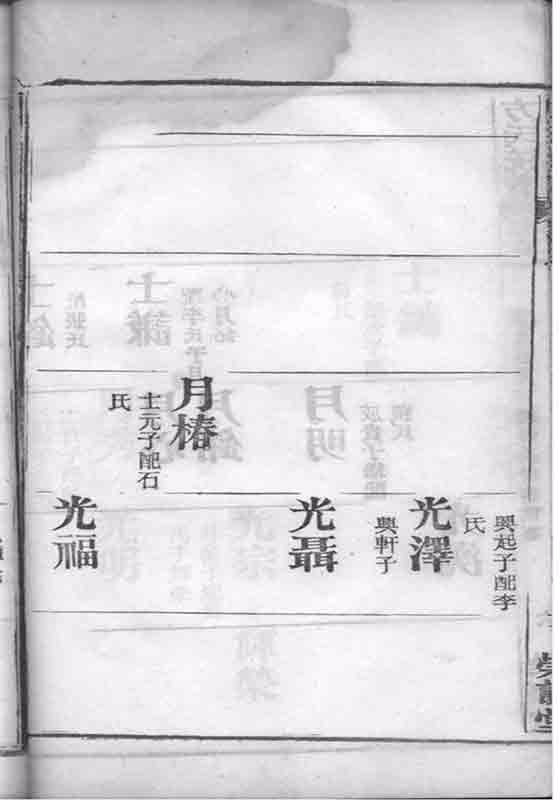 興起子配李
氏
光澤
興軒子
光聶
月椿
士元子配石
氏
光福